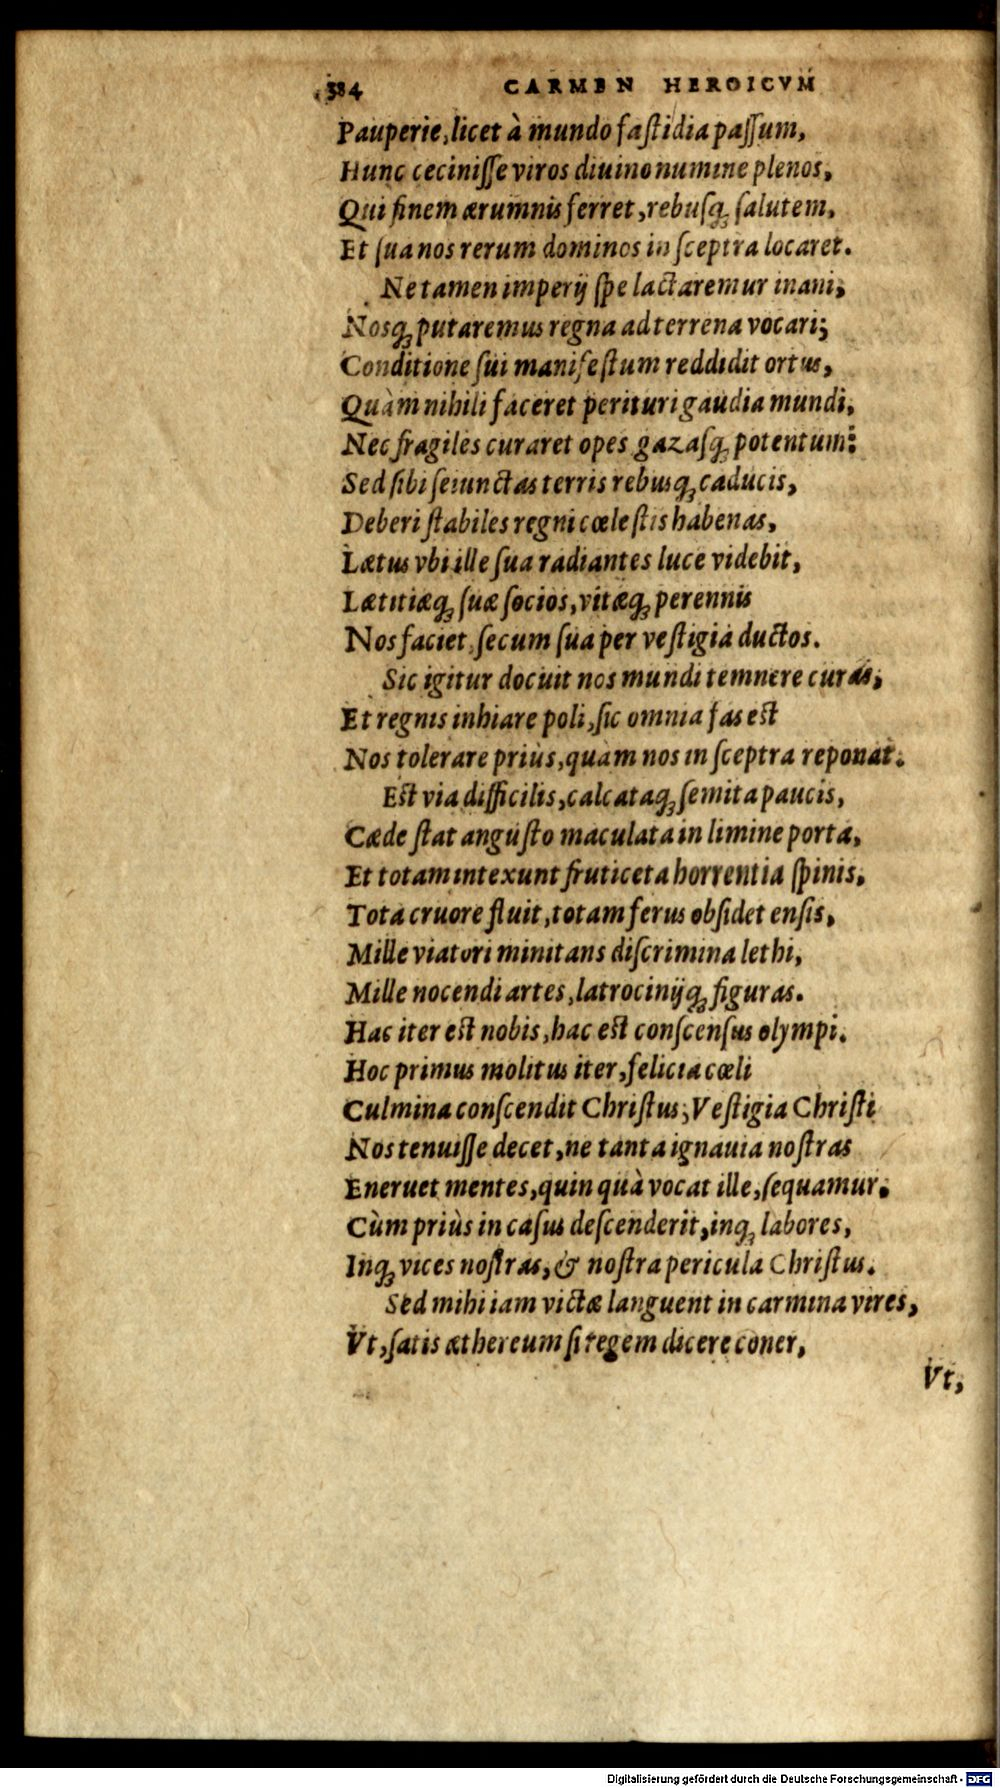 384 CARMEN HEROICVM
Pauperie, licet à mundo faſtidia paſſum,
Hunc ceciniſſe viros diuino numine plenos,
Qui finem ærumnis ferret, rebusq́; ſalutem,
Et ſua nos rerum dominos in ſceptra locaret.
Ne tamen imperij ſpe lactaremur inani,
Nosq́; putaremus regna ad terrena vocari;
Conditione ſui manifeſtum reddidit ortus,
Quàm nihili faceret perituri gaudia mundi,
Nec fragiles curaret opes gazasq́; potentum:
Sed ſibi ſeiunctas terris rebusq́; caducis,
Deberi ſtabiles regni cœleſtis habenas,
Lætus vbi ille ſua radiantes luce videbit,
Lætitiæq́; ſuæ ſocios, vitæq́; perennis
Nos faciet, ſecum ſua per veſtigia ductos.
Sic igitur docuit nos mundi temnere curas,
Et regnis inhiare poli, ſic omnia fas est
Nos tolerare priùs, quam nos in ſceptra reponat.
Est via difficilis, calcataq́; ſemita paucis,
Cæde ſtat anguſto maculata in limine porta,
Et totam intexunt fruticeta horrentia ſpinis,
Tota cruore fluit, totam ferus obſidet enſis,
Mille viatori minitans diſcrimina lethi,
Mille nocendi artes, latrocinijq́; figuras.
Hac iter est nobis, hac est conſcenſus olympi.
Hoc primus molitus iter, felicia cœli
Culmina conſcendit Chriſtus; Veſtigia Chriſti
Nos tenuiſſe decet, ne tanta ignauia noſtras
Eneruet mentes, quin quà vocat ille, ſequamur.
Cùm priùs in caſus deſcenderit, inq́; labores,
Inq́; vices noſtras, & noſtra pericula Chriſtus.
Sed mihi iam victæ languent in carmina vires,
Vt, ſatis æthereum ſi regem dicere coner,
Vt,
Digitalisierung gefördert durch die Deutsche Forschungsgemeinschaft - DFG